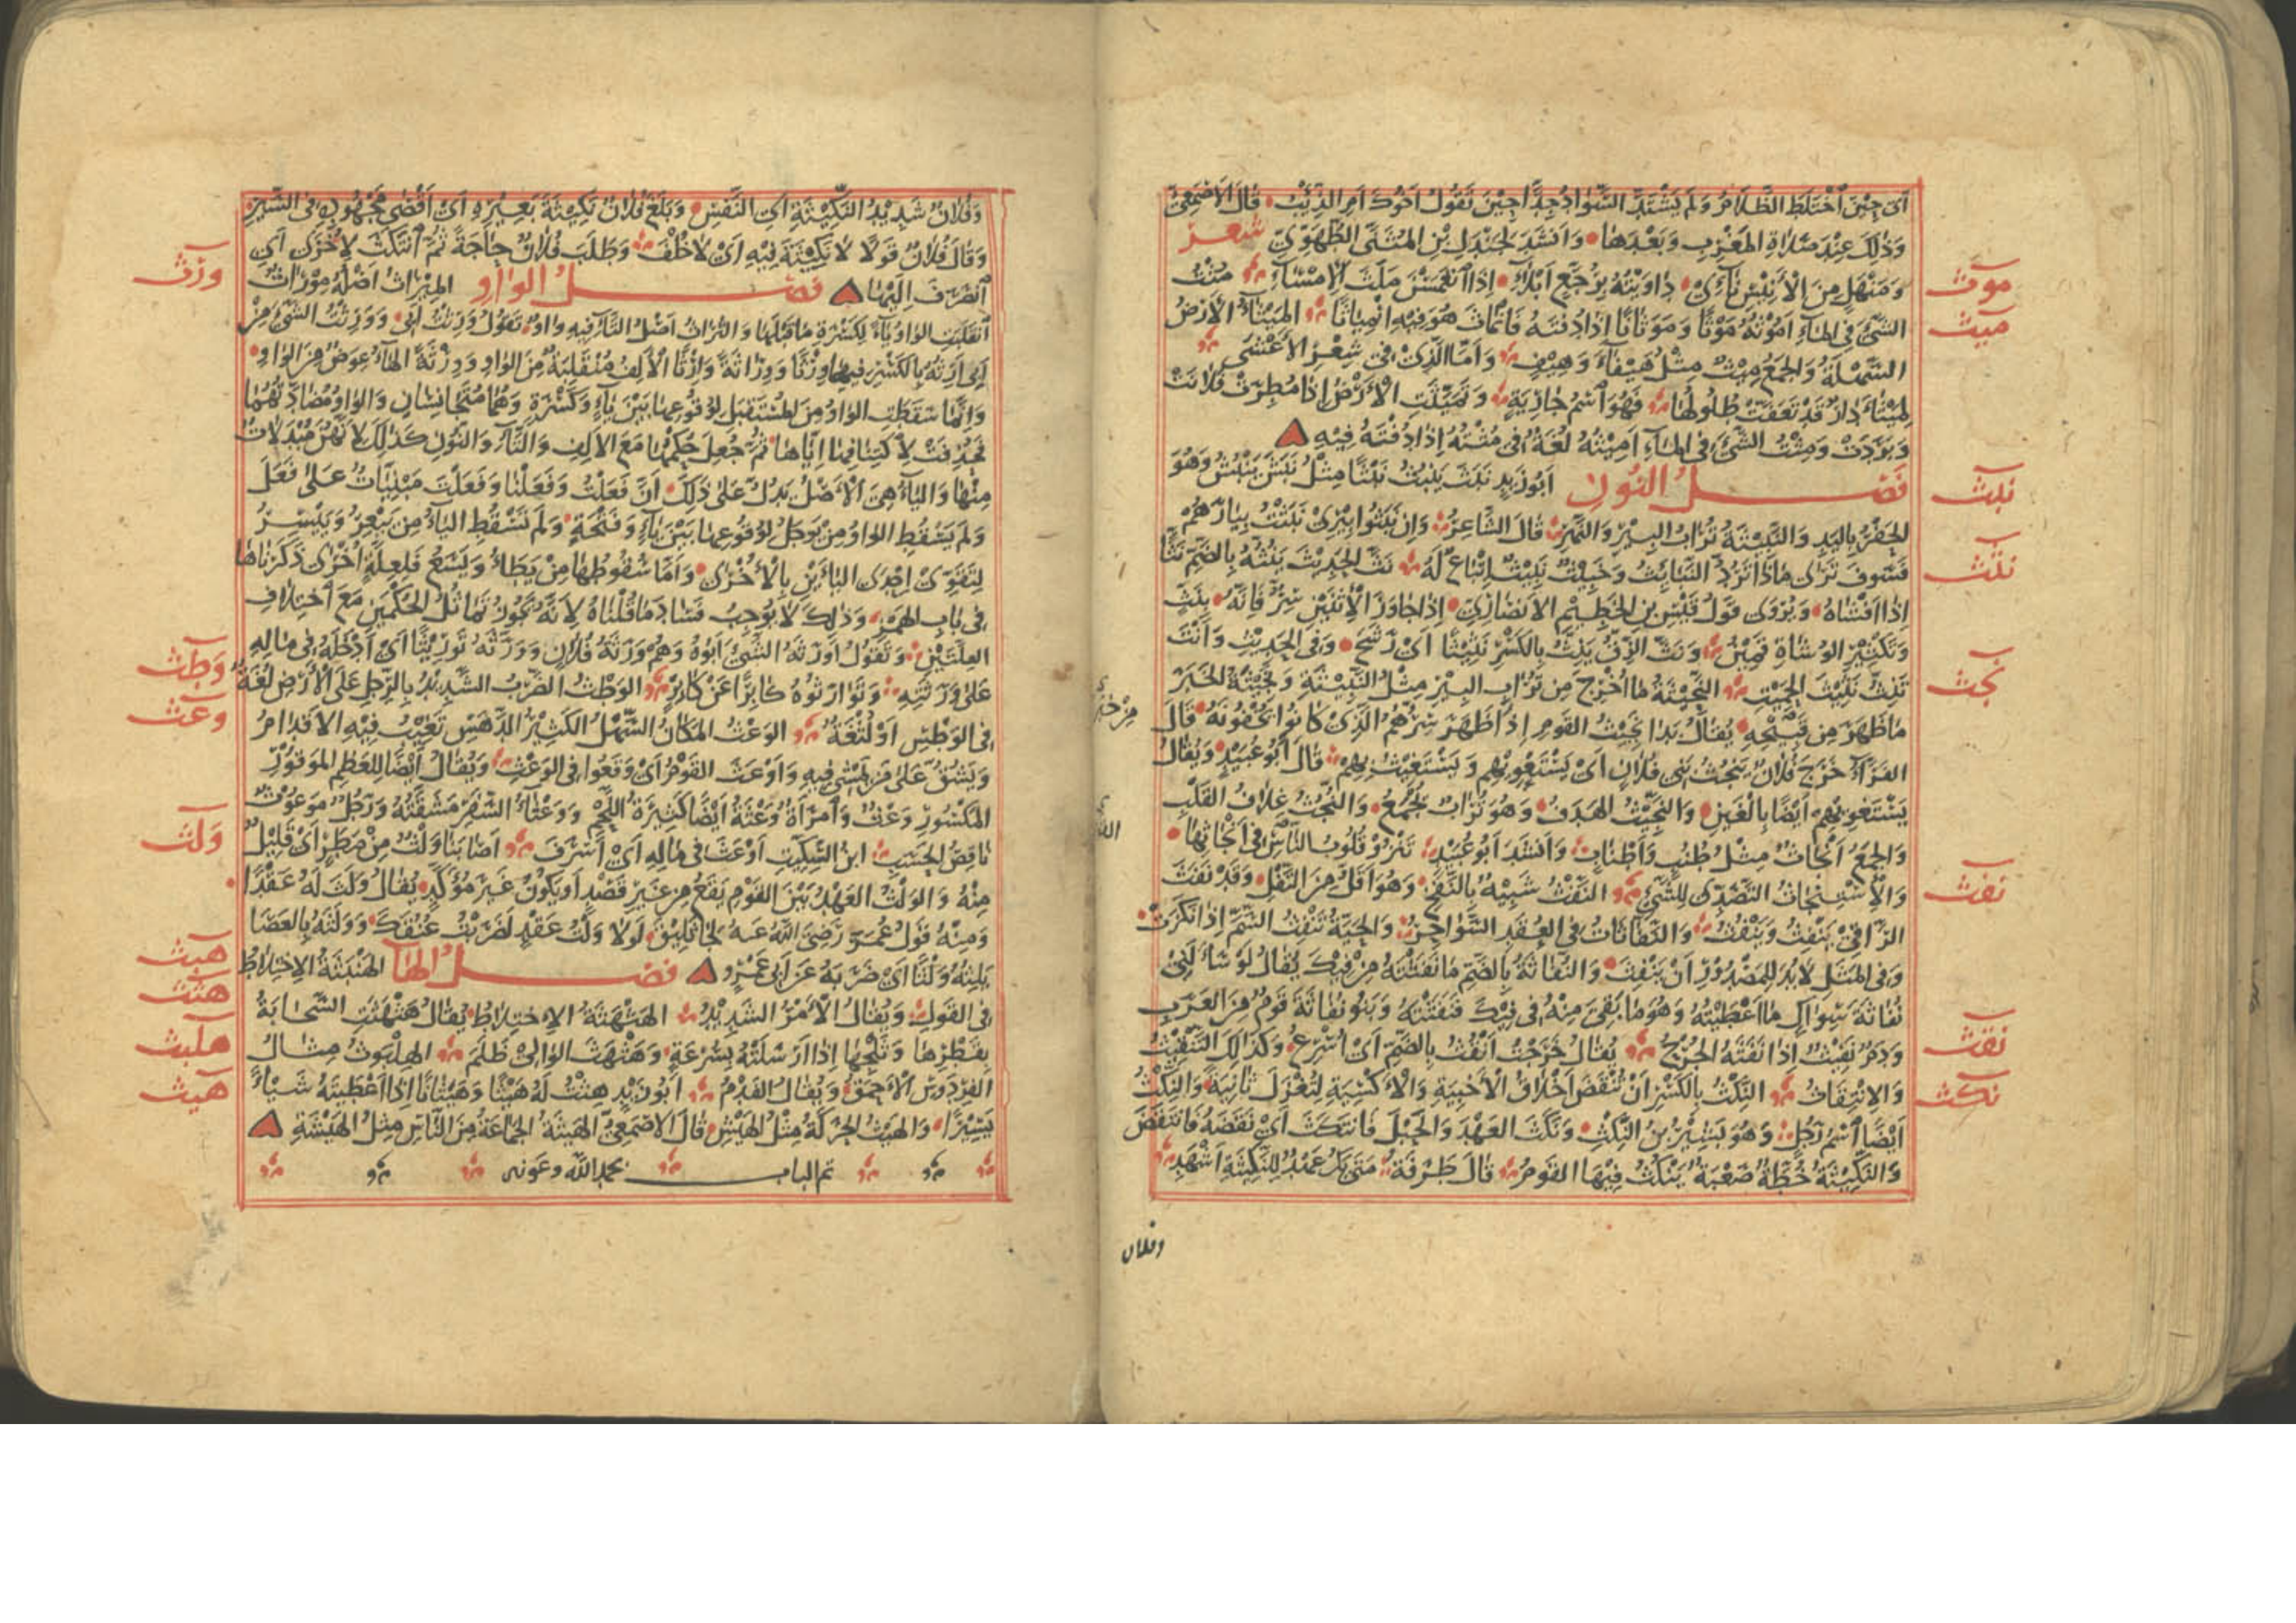 أى حين اختلط الظلام ولم يشتد السواد جدا حين تقول اخوك ام الذئب قال الاصمعى
وذلك عند صلاة المغرب وبعدها وانشد لجندل بن المثنى الطهوى شعر
ومنهل من الانيس نائى داويته برجع ابلاء اذا انغمسن ملث الامساء مثت
موث
الشئ فى الماء اموثه موثا وموثانا اذا دفته فانماث هو فيه انمياثا الميثاء الارض
ميث
السهلة والجمع ميث مثل هيفاء وهيف واما الذى فى شعر الاعشى
لميثاء دار قد تعفت طلولها فهو اسم جارية وتميثت الارض اذا مطرت فلانت
وبردت ومثت الشئ فى الماء اميثه لغة فى مثته اذا دفته فيه
فصل النون ابو زيد نبث ينبث نبثا مثل نبش ينبش وهو
نبث
الحفر باليد والنبيثة تراب البير والنهر قال الشاعر وان نبثوا بيرى نبثت بيارهم
فسوف ترى ماذا ترد النبائث وخبيث نبيث اتباع له نث الحديث ينثه بالضم نثا
نثث
اذا افشاه ويروى قول قيس بن الخطيم الانصارى اذا جاوز الاثنين سر فانه بنث
وتكثير الوشاة قمين ونث الزق ينث بالكسر نثيثا اى رشح وفى الحديث وانت
تنث نثيث الحميت النجيثة ما اخرج من تراب البير مثل النبيثة ونجيثة الخبر
نجث
ما ظهر من قبيحه يقال بدا نجيث القوم اذا ظهر سرهم الذى كانوا يخفونه قال
الفراء خرج فلان ينجث بنى فلان اى يستغويهم ويستغيث بهم قال ابو عبيد ويقال
يستغويهم ايضا بالغين والنجيث الهدف وهو تراب يجمع والنجث غلاف القلب
والجمع انجاث مثل طنب واطناب وانشد ابو عبيد تنزو قلوب الناس فى انجاثها
والاستنجاث التصدى للشئ النفث شبيه بالنفخ وهو اقل من التفل وقد نفث
نفث
الراقى ينفث وينفث والنفاثات فى العقد السواحر والحية تنفث السم اذا نكزت
وفى المثل لا بد للمصدور ان ينفث والنفاثة بالضم ما نفثته من فيك يقال لو سألنى
نفاثة سواك ما اعطيته وهو ما بقى منه فى فيك فنفثته وبنو نفاثة قوم من العرب
ودم نفيث اذا نفثه الجرح يقال خرجت انقث بالضم اى اسرع وكذلك التنقيث
نقث
والانتقاث النكث بالكسر ان تنقض اخلاق الاخبية والاكسية لتغزل ثانية والنكث
نكث
ايضا اسم رجل وهو بشير بن النكث ونكث العهد والحبل فانتكث اى نقضه فانتقض
والنكيثة خطة صعبة ينكث فيها القوم قال طرفة متى يك عهد للنكيثة اشهد
وفلان
وفلان شديد النكيثة اى النفس وبلغ فلان نكيثة بعيره اى اقصى مجهوده فى السير
وقال فلان قولا لا نكيثة فيه اى لا خلف وطلب فلان حاجة ثم انتكث لاخرى اى
انصرف اليها فصل الواو الميراث اصله موراث
ورث
انقلبت الواو ياء لكسرة ما قبلها والتراث اصل التاء فيه واو تقول ورثت ابى وورثت الشئ من
ابى ارثه بالكسر فيهما ورثا ووراثة وارثا الالف منقلبة من الواو ورثة الهاء عوض من الواو
وانما سقطت الواو من المستقبل لوقوعها بين ياء وكسرة وهما متجانسان والواو مضادتهما
فحذفت لاكتنافهما اياها ثم جعل حكمها مع الالف والتاء والنون كذلك لانهن مبدلات
منها والياء هى الاصل يدل على ذلك ان فعلت وفعلنا وفعلت مبنيات على فعل
ولم يسقط الواو من يوجل لوقوعها بين ياء وفتحة ولم تسقط الياء من ييعر وييسر
لتقوى احدى اليائين بالاخرى واما سقوطها من يطأ ويسع فلعلة اخرى ذكرناها
فى باب الهمز وذلك لا يوجب فساد ما قلناه لانه يجوز تماثل الحكمين مع اختلاف
العلتين وتقول اورثه الشئ ابوه وهم ورثة فلان وورثه توريثا اى ادخله فى ماله
على ورثته وتوارثوه كابرا عن كابر الوطث الضرب الشديد بالرجل على الارض لغة
وطث
فى الوطس او لثغة الوعث المكان السهل الكثير الدهس تغيب فيه الاقدام
وعث
ويشق على من يمشى فيه واوعث القوم اى وقعوا فى الوعث ويقال ايضا للعظم الموقور
المكسور وعث وامرأة وعثة ايضا كثيرة اللحم ووعثاء السفر مشقته ورجل موعوث
ناقص الحسب ابن السكيت اوعث فى ماله اى اسرف اصابنا ولث من مطر اى قليل
ولث
منه والولث العهد بين القوم يقع من غير قصد او يكون غير مؤكد يقال ولث له عقدا
ومنه قول عمر رضى الله عنه لجاثليق لولا ولث عقد لضربت عنقك وولثه بالعصا
يلثه ولثا اى ضربه عن ابى عمرو فصل الهاء الهنبثة الاختلاط
هبث
فى القول ويقال الامر الشديد الهثهثة الاختلاط يقال هثهثت السحابة
هثث
بقطرها وثلجها اذا ارسلته بسرعة وهثهث الوالى ظلم الهلبوث مثال
هلبث
الفردوس الاحمق ويقال الفدم ابو زيد هثت له هيثا وهيثانا اذا اعطيته شيأ
هيث
يسيرا والهيث الحركة مثل الهيش قال الاصمعى الهيثة الجماعة من الناس مثل الهيشة
تم الباب بحمد الله وعونه